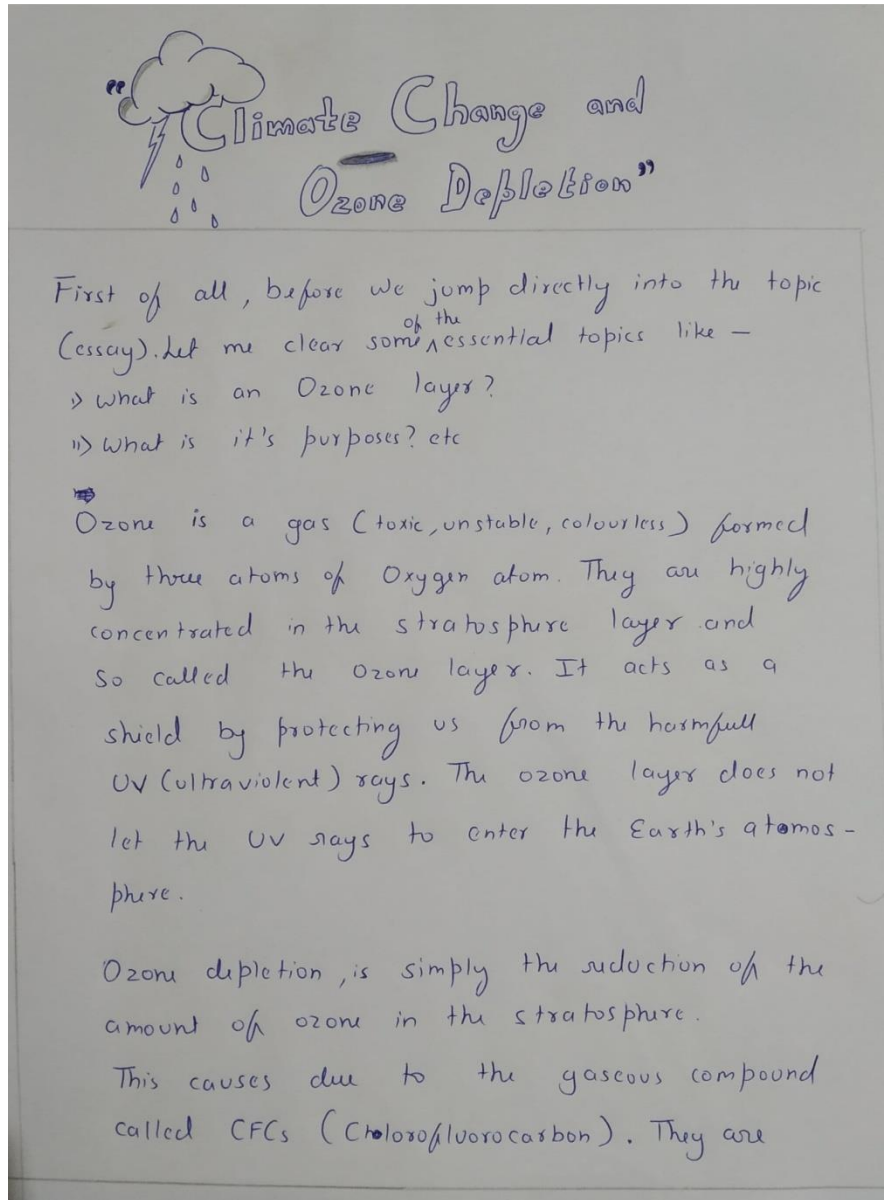 "Climate Change and
Ozone Depletion"
First of all, before we jump directly into the topic
(essay). Let me clear some of the essential topics like —
i) What is an Ozone layer?
ii) What is it's purposes? etc
Ozone is a gas (toxic, unstable, colourless) formed
by three atoms of Oxygen atom. They are highly
concentrated in the stratosphere layer and
so called the ozone layer. It acts as a
shield by protecting us from the harmfull
UV (ultraviolent) rays. The ozone layer does not
let the UV rays to enter the Earth's atomos-
phere.
Ozone depletion, is simply the reduction of the
amount of ozone in the stratosphere.
This causes due to the gaseous compound
called CFCs (Cholorofluorocarbon). They are